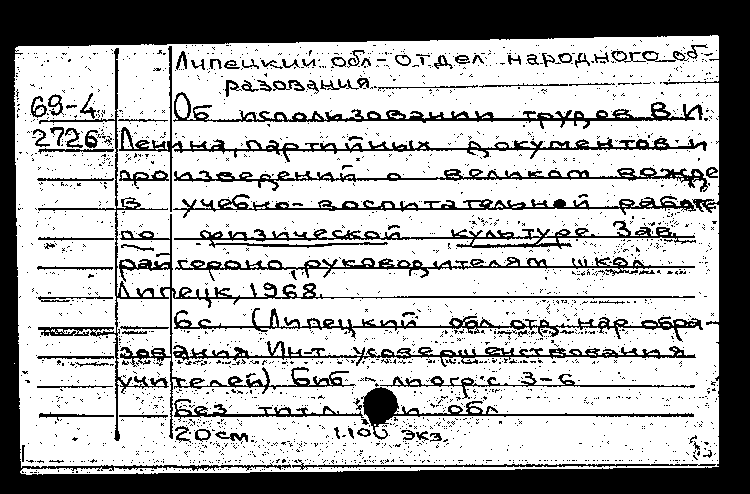 Липецкий обл-отдел народного об-
разования
69-4 Об использовании трудов В.И.
2726 Ленина, партийных документов и
произведений о великом вожде
в учебно-воспитательной работе
по физической культуре. Зав.
райгороно, руководителям школ
Липецк, 1968.
6 с. (Липецкий обл. отд. нар. обра-
зования Ин-т усовершенствования
учителей). Библиогр: с. 3-6
Без тит. л. и обл.
20 см. 1.100 экз.